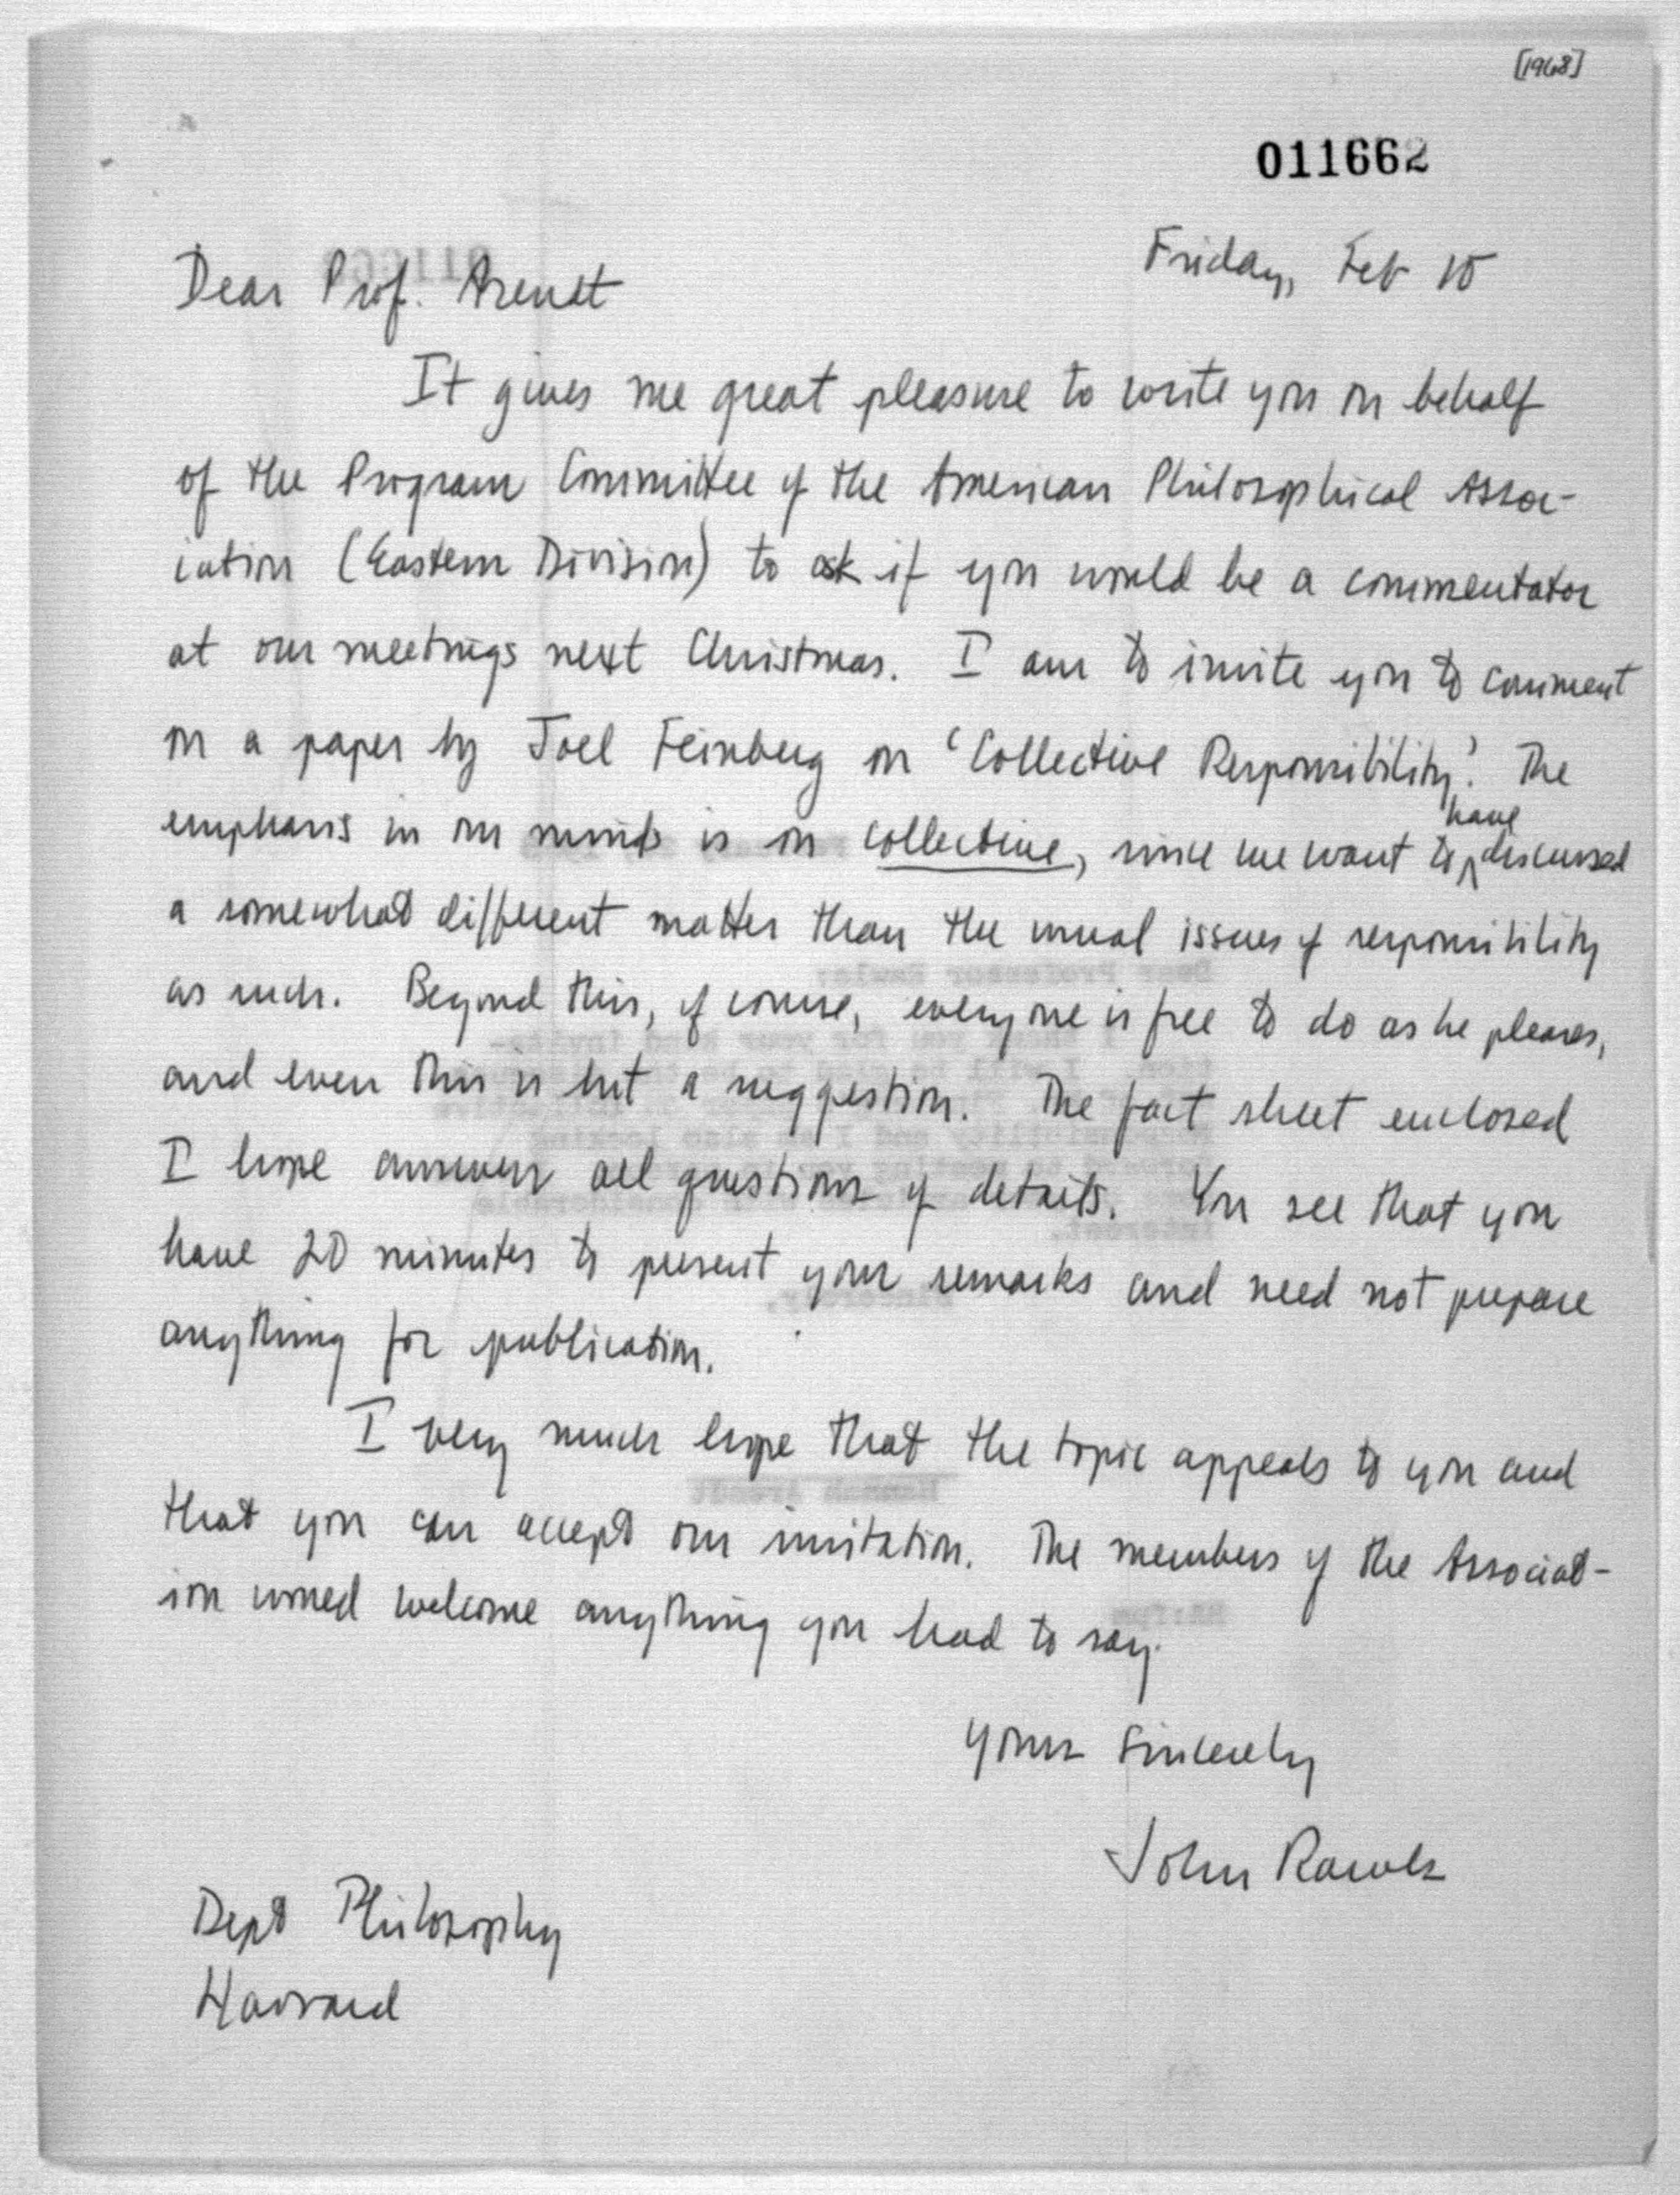 [1968]
011662
Friday, Feb 15
Dear Prof. Arendt
It gives me great pleasure to write you on behalf
of the Program Committee of the American Philosophical Assoc-
iation (Eastern Division) to ask if you would be a commentator
at our meetings next Christmas. I am to invite you to comment
on a paper by Joel Feinberg on 'Collective Responsibility'. The
emphasis in our minds is on collective, since we want to have discussed
a somewhat different matter than the usual issues of responsibility
as such. Beyond this, of course, everyone is free to do as he pleases,
and even this is but a suggestion. The fact sheet enclosed
I hope answers all questions of details. You see that you
have 20 minutes to present your remarks and need not prepare
anything for publication.
I very much hope that the topic appeals to you and
that you can accept our invitation. The members of the Associat-
ion would welcome anything you had to say.
Yours sincerely
John Rawls
Dept Philosophy
Harvard